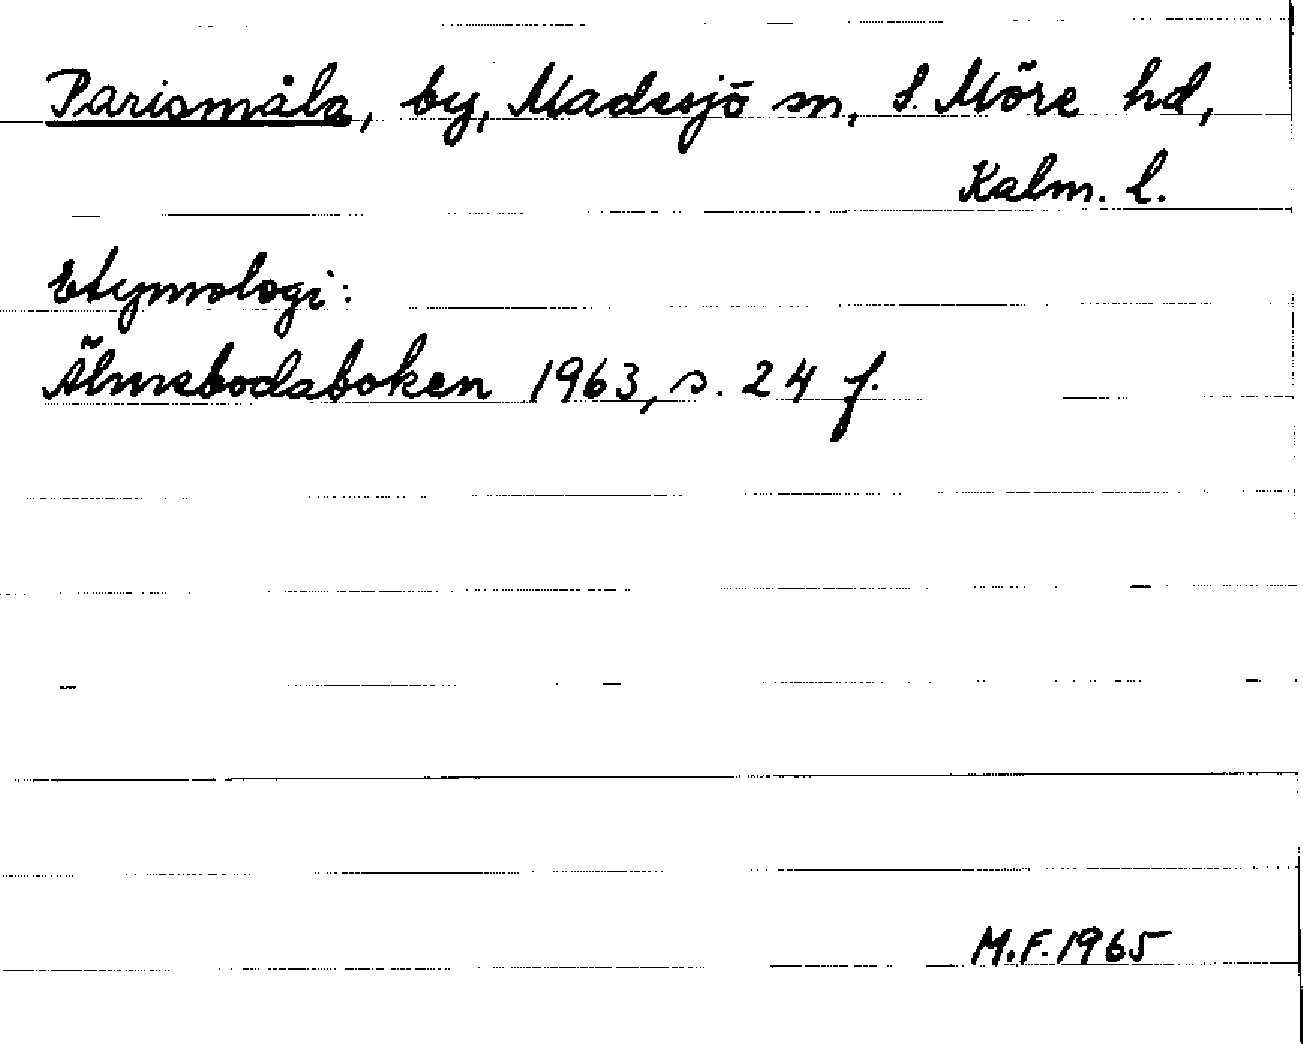 Parismåla, by, Madesjö sn, S. Möre hd,
Kalm. l.
Etymologi:
Älmebodaboken 1963, s. 24 f.
M.F. 1965